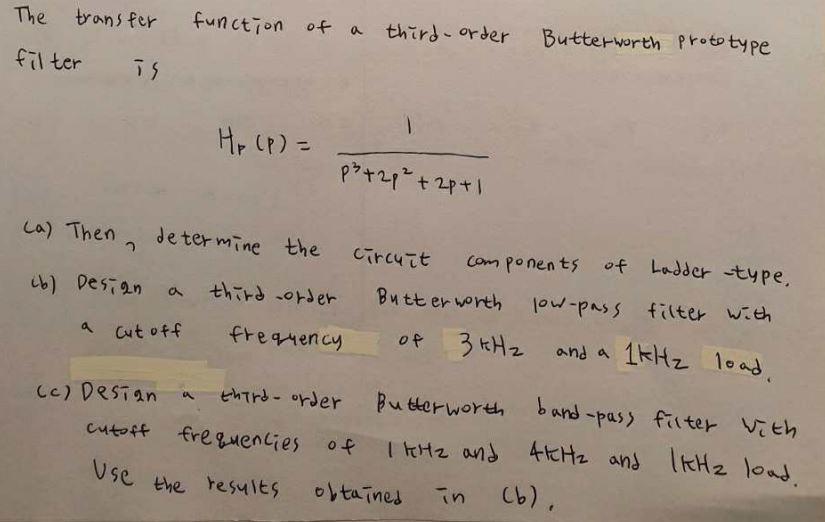 The transfer function of a third-order Butterworth prototype
filter is
Hp (p) = 1 / p³+2p²+2p+1
(a) Then, determine the circuit components of Ladder-type.
(b) Design a third-order Butterworth low-pass filter with
a cutoff frequency of 3 kHz and a 1kHz load.
(c) Design a third-order Butterworth band-pass filter with
cutoff frequencies of 1 kHz and 4kHz and 1kHz load.
Use the results obtained in (b).